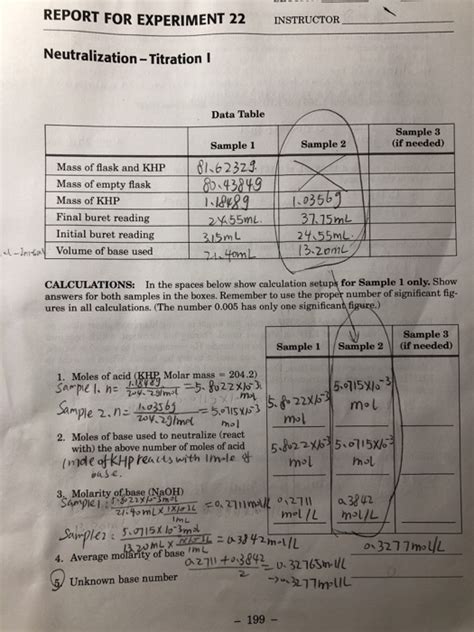 REPORT FOR EXPERIMENT 22 INSTRUCTOR
Neutralization – Titration I
Data Table
Sample 1 Sample 2 Sample 3 (if needed)
Mass of flask and KHP 81.6232g
Mass of empty flask 80.4384g
Mass of KHP 1.1848g 1.0356g
Final buret reading 24.55mL 37.75mL
Initial buret reading 3.15mL 24.55mL
Volume of base used 21.40mL 13.20mL
CALCULATIONS: In the spaces below show calculation setups for Sample 1 only. Show
answers for both samples in the boxes. Remember to use the proper number of significant fig-
ures in all calculations. (The number 0.005 has only one significant figure.)
Sample 1 Sample 2 Sample 3 (if needed)
1. Moles of acid (KHP, Molar mass = 204.2)
Sample 1. n = 1.1848g / 204.2g/mol = 5.8022X10⁻³ mol 5.8022X10⁻³ mol 5.0715X10⁻³ mol
Sample 2. n = 1.0356g / 204.2g/mol = 5.0715X10⁻³ mol
2. Moles of base used to neutralize (react
with) the above number of moles of acid 5.8022X10⁻³ mol 5.0715X10⁻³ mol
1 mole of KHP reacts with 1 mole of
base.
3. Molarity of base (NaOH)
Sample 1: 5.8022X10⁻³mol / 21.40mL X 1X10⁻³L / 1mL = 0.2711mol/L 0.2711 mol/L 0.3842 mol/L
Sample 2: 5.0715X10⁻³mol / 13.20mL X 1X10⁻³L / 1mL = 0.3842mol/L
4. Average molarity of base 0.3277mol/L
0.2711 + 0.3842 / 2 = 0.32765mol/L
→0.3277mol/L
5. Unknown base number
– 199 –